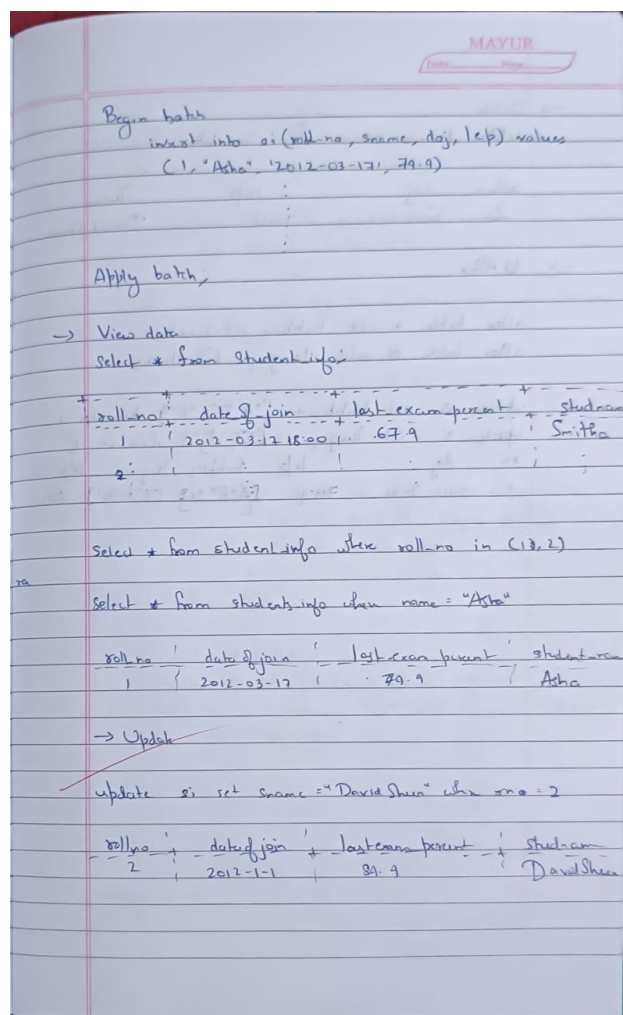 MAYUR
Date Page
Begin batch
insert into si (roll-no, sname, doj, lep) values
(1, "Asha", '2012-03-17', 79.9)
Apply batch,
→ View data
Select * from Student info;
roll-no date of join last exam percent stud nam
1 2012-03-17 18:00 67.9 Smitha
2
Select * from student info where roll-no in (1, 2)
ra
Select * from students info when name = "Asha"
roll no date of join last exam percent student-nam
1 2012-03-17 79.9 Asha
→ Update
update si set sname = "David Sheen" whe rno = 2
roll no date of join last exam percent stud-nam
2 2012-1-1 89.9 David Sheen